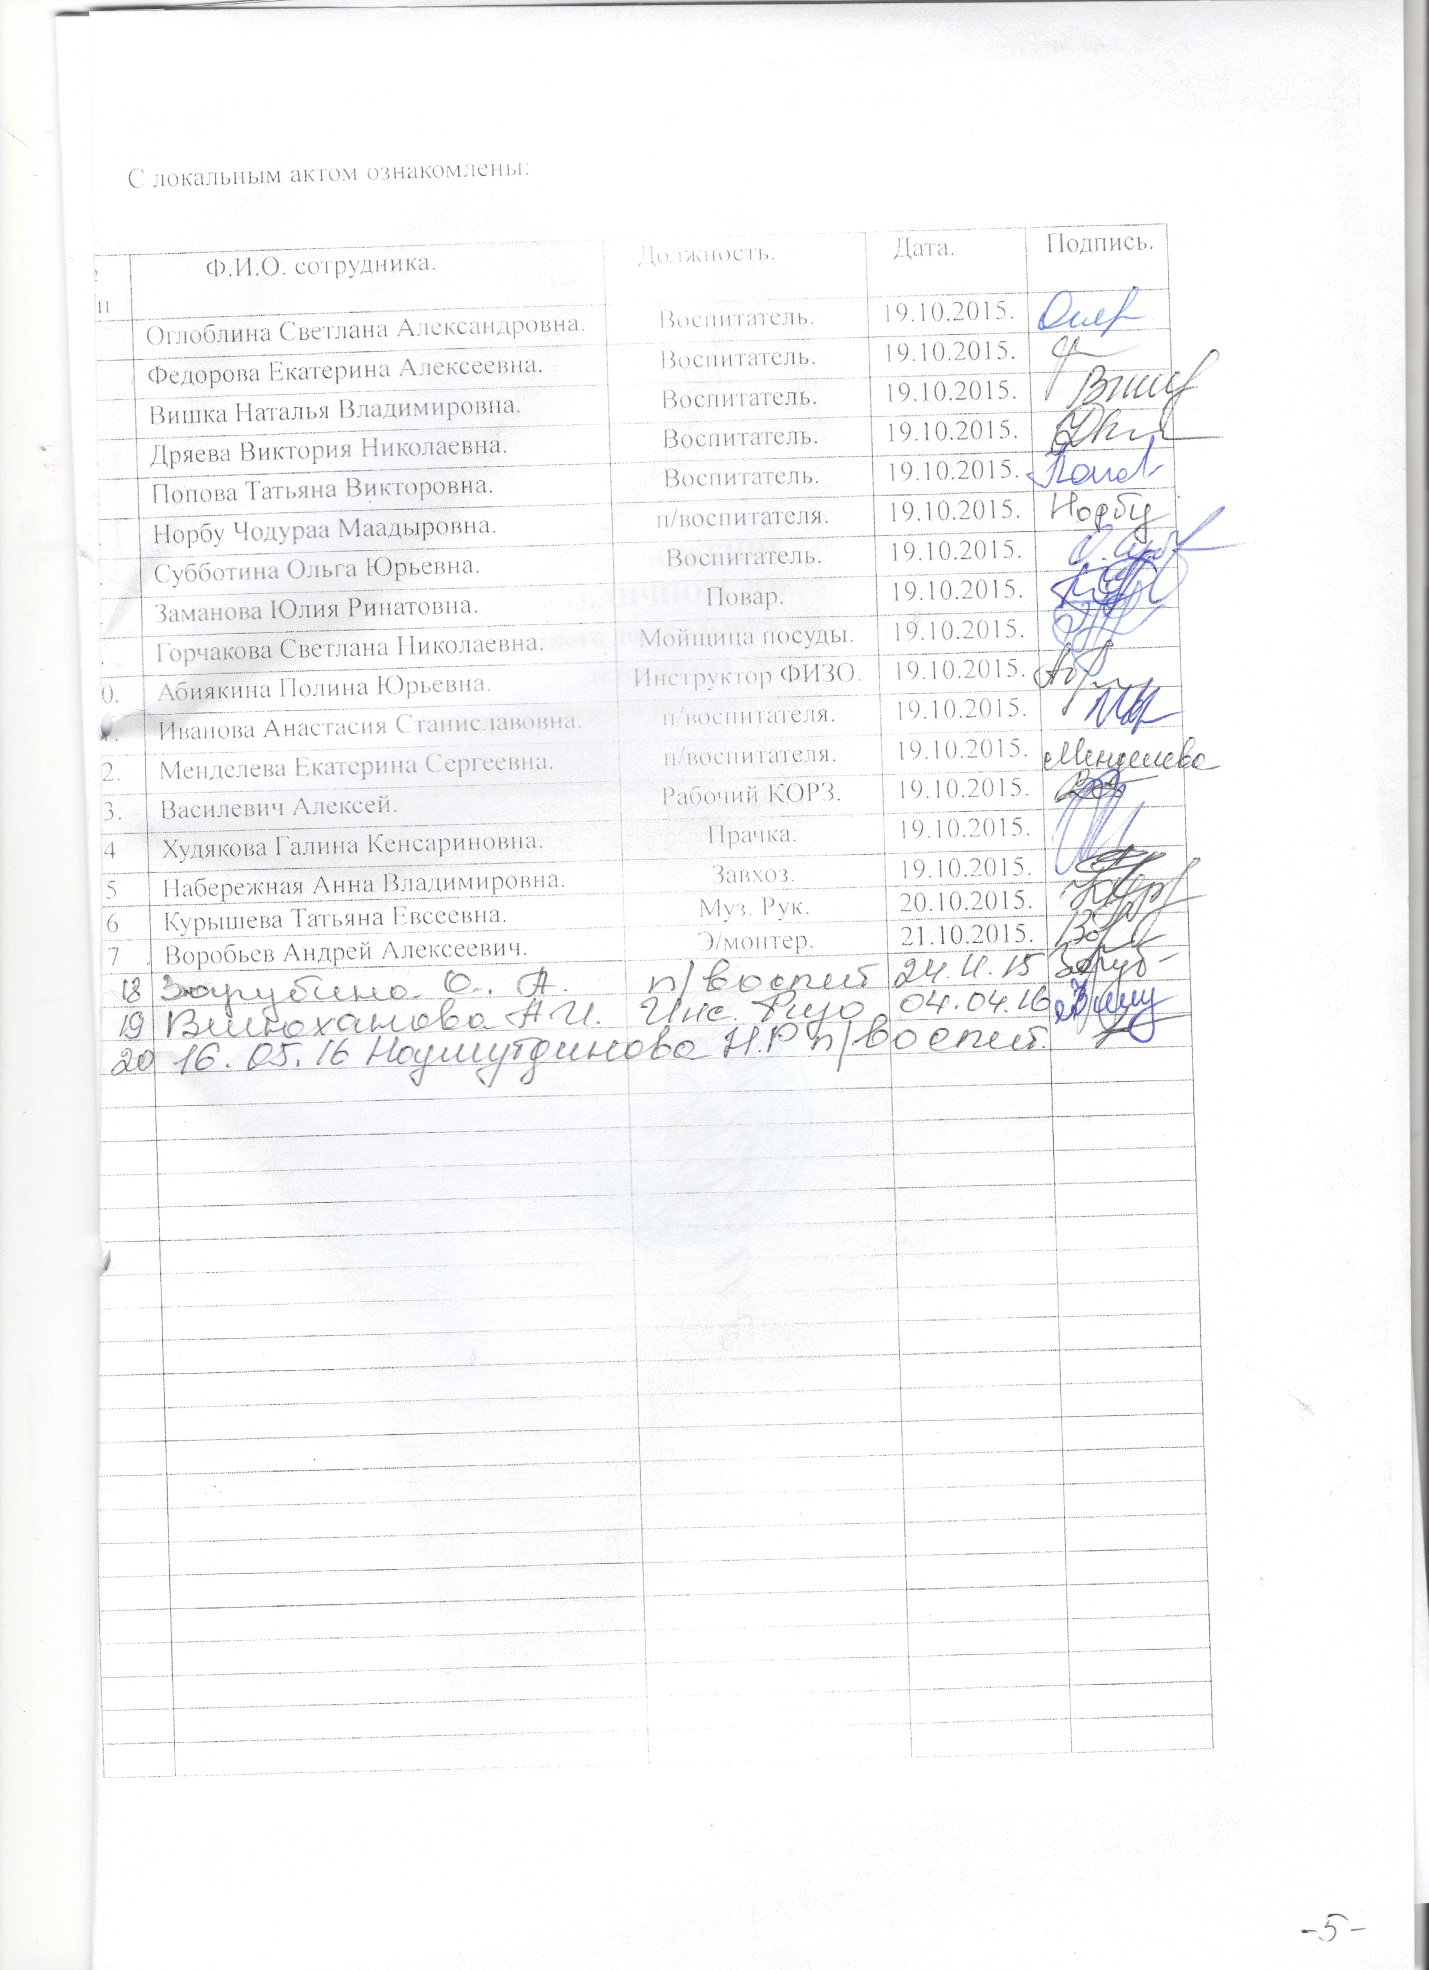 С локальным актом ознакомлены:
Ф.И.О. сотрудника. Должность. Дата. Подпись.
п
Оглоблина Светлана Александровна. Воспитатель. 19.10.2015.
Федорова Екатерина Алексеевна. Воспитатель. 19.10.2015.
Вишка Наталья Владимировна. Воспитатель. 19.10.2015.
Дряева Виктория Николаевна. Воспитатель. 19.10.2015.
Попова Татьяна Викторовна. Воспитатель. 19.10.2015.
Норбу Чодураа Маадыровна. п/воспитателя. 19.10.2015. Норбу
Субботина Ольга Юрьевна. Воспитатель. 19.10.2015.
Заманова Юлия Ринатовна. Повар. 19.10.2015.
Горчакова Светлана Николаевна. Мойщица посуды. 19.10.2015.
0. Абиякина Полина Юрьевна. Инструктор ФИЗО. 19.10.2015.
Иванова Анастасия Станиславовна. п/воспитателя. 19.10.2015.
2. Менделева Екатерина Сергеевна. п/воспитателя. 19.10.2015. Менделева
3. Василевич Алексей. Рабочий КОРЗ. 19.10.2015.
4 Худякова Галина Кенсариновна. Прачка. 19.10.2015.
5 Набережная Анна Владимировна. Завхоз. 19.10.2015.
6 Курышева Татьяна Евсеевна. Муз. Рук. 20.10.2015.
7 Воробьев Андрей Алексеевич. Э/монтер. 21.10.2015.
18 Зарубина О. А. п/воспит 24.11.15
19 Виноханова А.И. Инс. Физо 04.04.16
20 16.05.16 Наумутдинова Н.Р п/воспит.
-5-